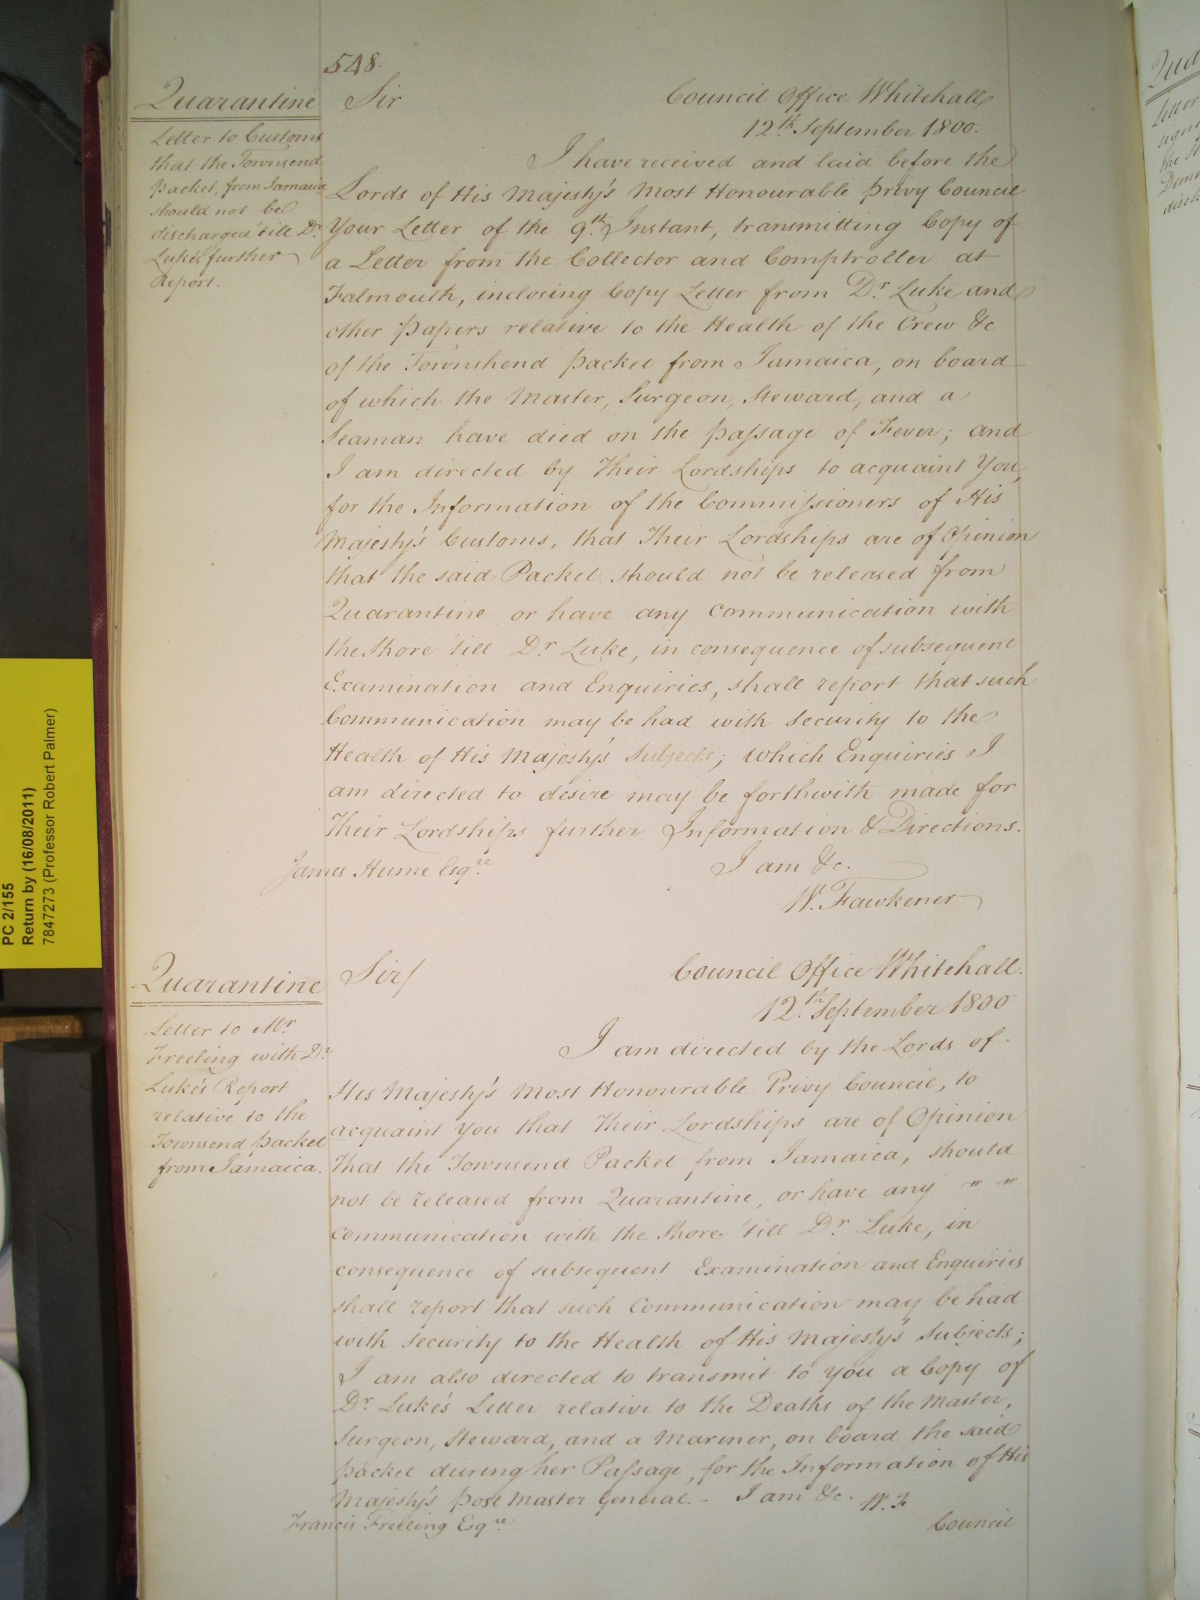 548.
Quarantine
Letter to Customs
that the Townsend
Packet, from Jamaica
should not be
discharged till Dr.
Luke's further
Report.
Sir
Council Office Whitehall
12th. September 1800.
I have received and laid before the
Lords of His Majesty's Most Honourable Privy Council
Your Letter of the 9th. Instant, transmitting Copy of
a Letter from the Collector and Comptroller at
Falmouth, inclosing Copy Letter from Dr. Luke and
other Papers relative to the Health of the Crew &c
of the Townshend Packet from Jamaica, on board
of which the Master, Surgeon, Steward, and a
Seaman have died on the passage of Fever; and
I am directed by Their Lordships to acquaint You,
for the Information of the Commissioners of His
Majesty's Customs, that Their Lordships are of Opinion
that the said Packet should not be released from
Quarantine or have any Communication with
the Shore 'till Dr. Luke, in consequence of subsequent
Examination and Enquiries, shall report that such
Communication may be had with Security to the
Health of His Majesty's Subjects; which Enquiries I
am directed to desire may be forthwith made for
Their Lordships further Information & Directions.
I am &c.
James Hume Esqre.
W. Fawkener
Quarantine
Letter to Mr.
Freeling with Dr.
Luke's Report
relative to the
Townsend Packet
from Jamaica.
Sir/
Council Office Whitehall.
12th. September 1800
I am directed by the Lords of
His Majesty's Most Honourable Privy Council, to
acquaint You that Their Lordships are of Opinion
That the Townsend Packet from Jamaica, should
not be released from Quarantine, or have any " "
communication with the Shore 'till Dr. Luke, in
consequence of subsequent Examination and Enquiries
shall report that such Communication may be had
with Security to the Health of His Majesty's Subjects;
I am also directed to transmit to You a Copy of
Dr. Luke's Letter relative to the Deaths of the Master,
Surgeon, Steward, and a Mariner, on board the said
Packet during her Passage, for the Information of His
Majesty's Post Master General. - I am &c. W. F
Francis Freeling Esqre.
Council
PC 2/155
Return by (16/08/2011)
7847273 (Professor Robert Palmer)